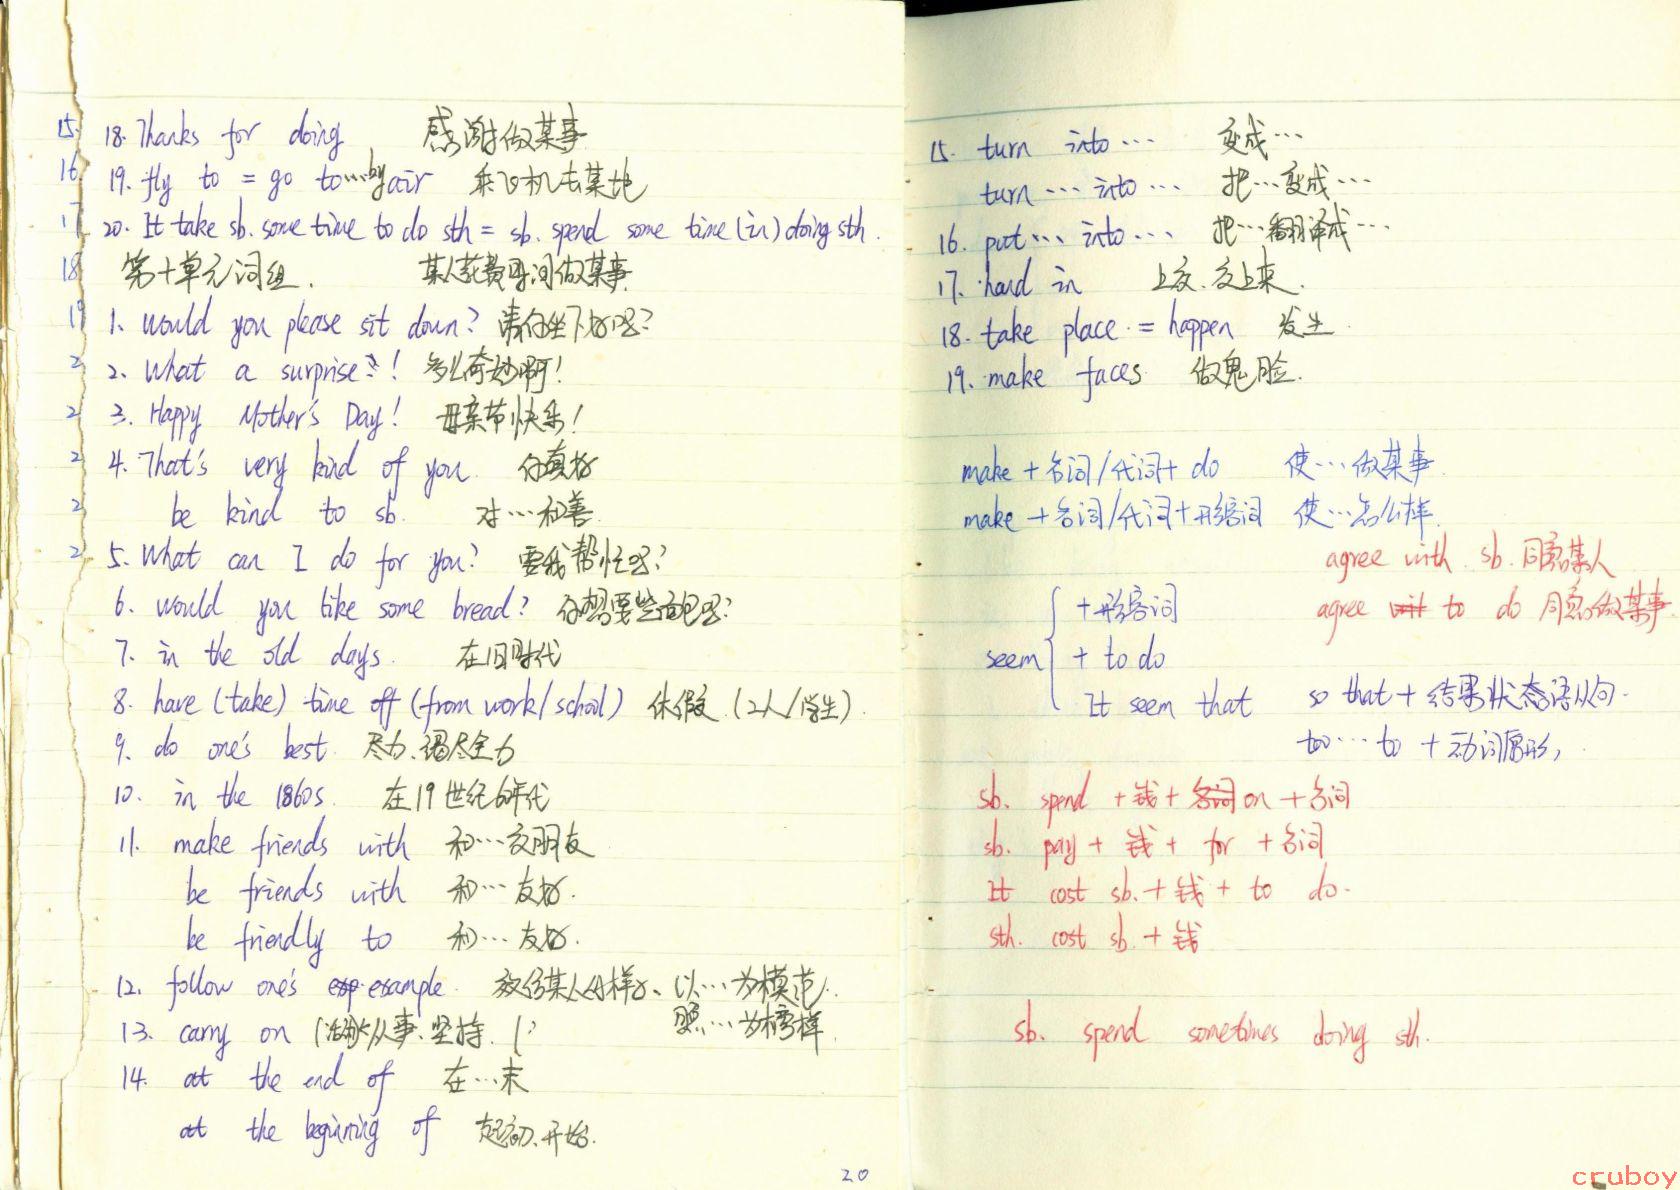 15.
16.
17
18
19
2
2
2
2
2
18. Thanks for doing 感谢做某事
19. fly to = go to…by air 乘飞机去某地
20. It take sb. some time to do sth = sb. spend some time (in) doing sth.
第十单元词组. 某人花费时间做某事
1. Would you please sit down? 请你坐下好吗?
2. What a surprise! 多么奇妙啊!
3. Happy Mother's Day! 母亲节快乐!
4. That's very kind of you. 你真好
be kind to sb. 对…和善
5. What can I do for you? 要我帮忙吗?
6. Would you like some bread? 你想要些面包吗?
7. in the old days. 在旧时代
8. have (take) time off (from work/school) 休假 (工人/学生).
9. do one's best. 尽力、竭尽全力
10. in the 1860s. 在19世纪60年代
11. make friends with 和…交朋友
be friends with 和…友好.
be friendly to 和…友好.
12. follow one's example. 某人 样子、以…为模范.
照…为榜样
13. carry on 从事、坚持.
14. at the end of 在…末
at the beginning of 起初、开始.
20
15. turn into… 变成…
turn…into… 把…变成…
16. put…into… 把…翻译成…
17. hand in 上交、交上来.
18. take place. = happen 发生.
19. make faces 做鬼脸.
make + 名词/代词 + do 使…做某事
make + 名词/代词 + 形容词 使…怎么样.
agree with sb. 同意某人
agree to do 同意做某事
seem
+ 形容词
+ to do
It seem that
so that + 结果状态语从句.
too…to + 动词原形,
sb. spend + 钱 + on + 名词
sb. pay + 钱 + for + 名词
It cost sb. + 钱 + to do.
sth. cost sb. + 钱
sb. spend sometimes doing sth.
cruboy